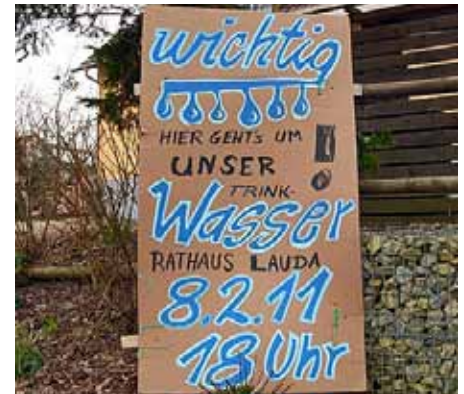 wichtig
HIER GEHTS UM
UNSER !
TRINK-
Wasser
RATHAUS LAUDA
8.2.11
18 Uhr